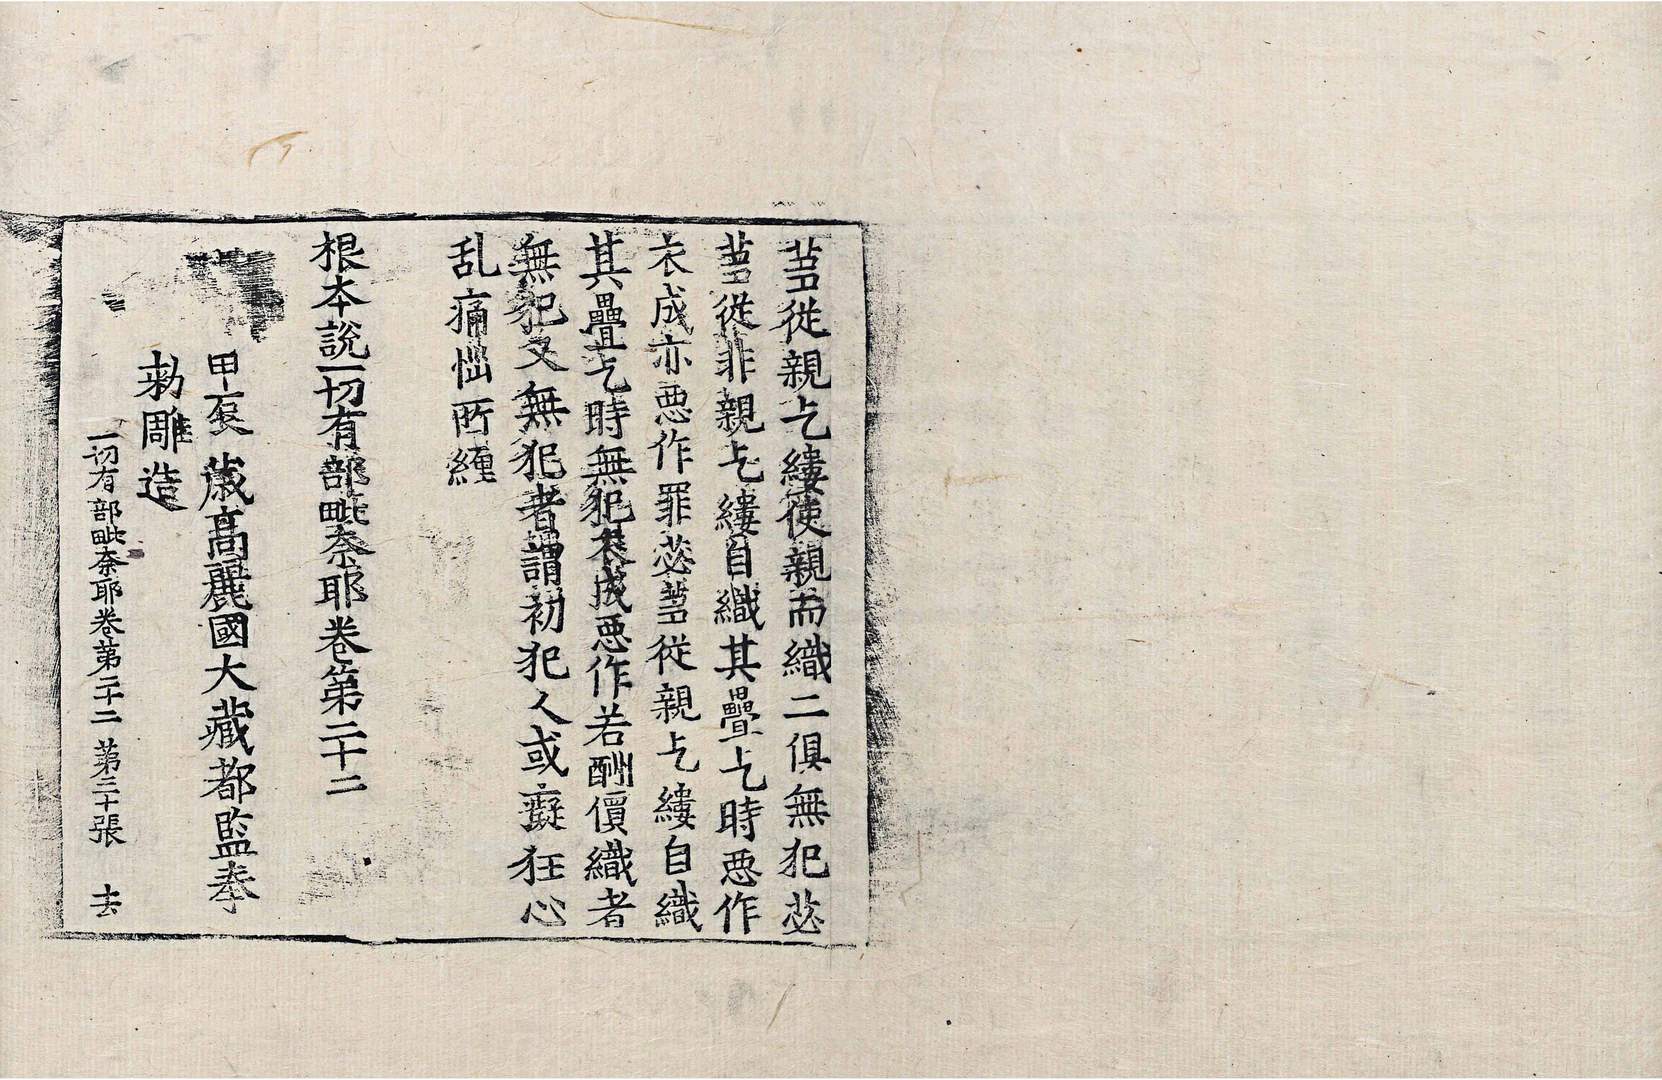 芻從親乞縷使親而織二俱無犯苾
芻從非親乞縷自織其疊乞時惡作
衣成亦惡作罪苾芻從親乞縷自織
其疊乞時無犯衣成惡作若酬價織者
無犯又無犯者謂初犯人或癡狂心
乱痛惱所纏
根本說一切有部毗奈耶卷第二十二
甲辰歲高麗國大藏都監奉
勅雕造
一切有部毗奈耶卷第二十二 第二十張 去